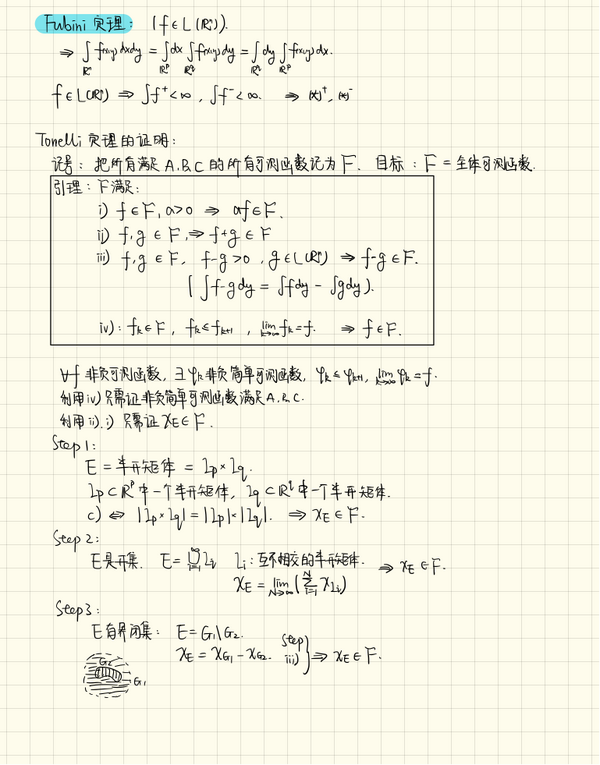 Fubini 定理: (f∈L(ℝⁿ)).
⇒ ∫_{ℝⁿ} f(x,y)dxdy = ∫_{ℝᵖ}dx ∫_{ℝ^q} f(x,y)dy = ∫_{ℝ^q}dy ∫_{ℝᵖ} f(x,y)dx.
f∈L(ℝⁿ) ⇒ ∫f⁺<∞, ∫f⁻<∞. ⇒ (*)⁺, (*)⁻
Tonelli 定理的证明:
记号: 把所有满足 A.B.C 的所有可测函数记为 F. 目标: F = 全体可测函数.
引理: F满足:
i) f∈F, a>0 ⇒ af∈F.
ii) f,g∈F, ⇒ f+g∈F
iii) f,g∈F, f-g>0, g∈L(ℝⁿ) ⇒ f-g∈F.
(∫f-gdy = ∫fdy - ∫gdy).
iv): f_k∈F, f_k≤f_{k+1}, lim_{k→∞} f_k=f. ⇒ f∈F.
∀f 非负可测函数, ∃φ_k非负简单可测函数, φ_k≤φ_{k+1}, lim_{k→∞} φ_k=f.
利用iv) 只需证非负简单可测函数满足A.B.C.
利用ii).i) 只需证 χ_E∈F.
Step 1:
E = 半开矩体 = I_p×I_q.
I_p⊂ℝᵖ中一个半开矩体, I_q⊂ℝ^q中一个半开矩体.
c) ⇔ |I_p×I_q|=|I_p|×|I_q|. ⇒ χ_E∈F.
Step 2:
E是开集. E=⋃_{i=1}^∞ I_i I_i:互不相交的半开矩体. ⇒ χ_E∈F.
χ_E = lim_{N→∞}(∑_{i=1}^N χ_{I_i})
Step3:
E有界闭集: E=G₁\G₂. Step
χ_E=χ_{G₁}-χ_{G₂}. iii) } ⇒ χ_E∈F.
G₂
G₁